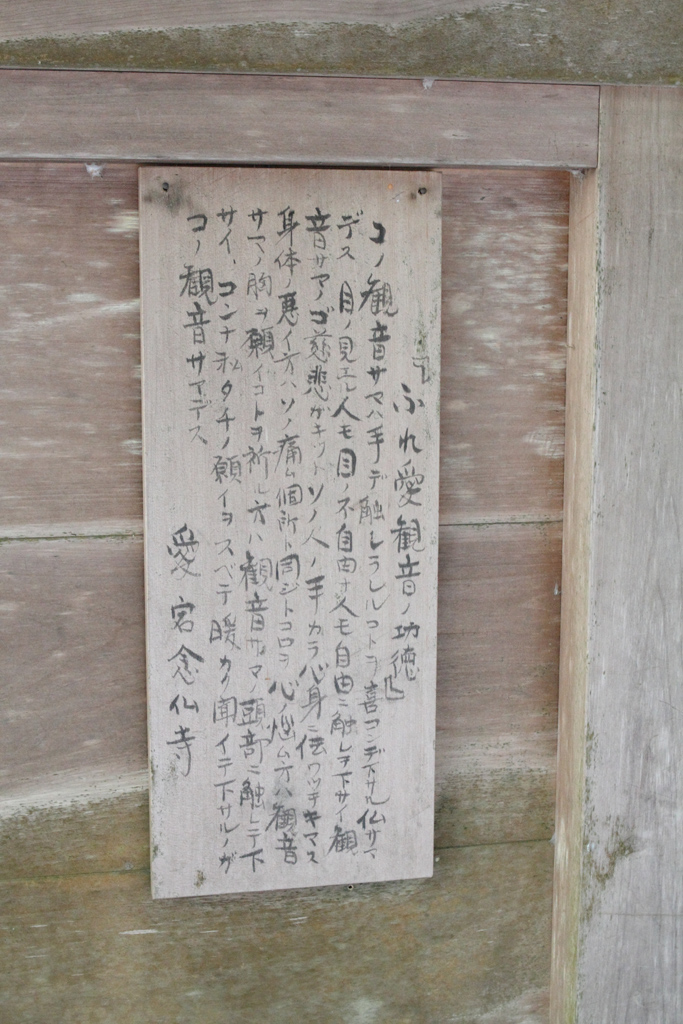 「ふれ愛観音ノ功徳」
コノ観音サマハ手デ触レラレルコトヲ喜コンデ下サル仏サマ
デス 目ノ見エル人モ目ノ不自由ナ人モ自由ニ触レテ下サイ観
音サマノゴ慈悲ガキットソノ人ノ手カラ心身ニ伝ワッテキマス
身体ノ悪イ方ハソノ痛ム個所ト同ジトコロヲ心ノ悩ム方ハ観音
サマノ胸ヲ願イゴトヲ祈ル方ハ観音サマノ頭部ニ触レテ下
サイ、コンナ私タチノ願イヲスベテ暖カク聞イテ下サルノガ
コノ観音サマデス
愛宕念仏寺